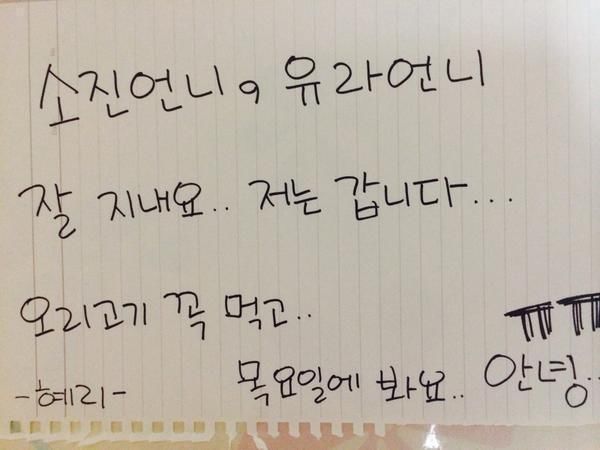 소진언니, 유라언니
잘 지내요.. 저는 갑니다...
오리고기 꼭 먹고..
ㅠㅠ
목요일에 봐요.. 안녕..
-혜리-